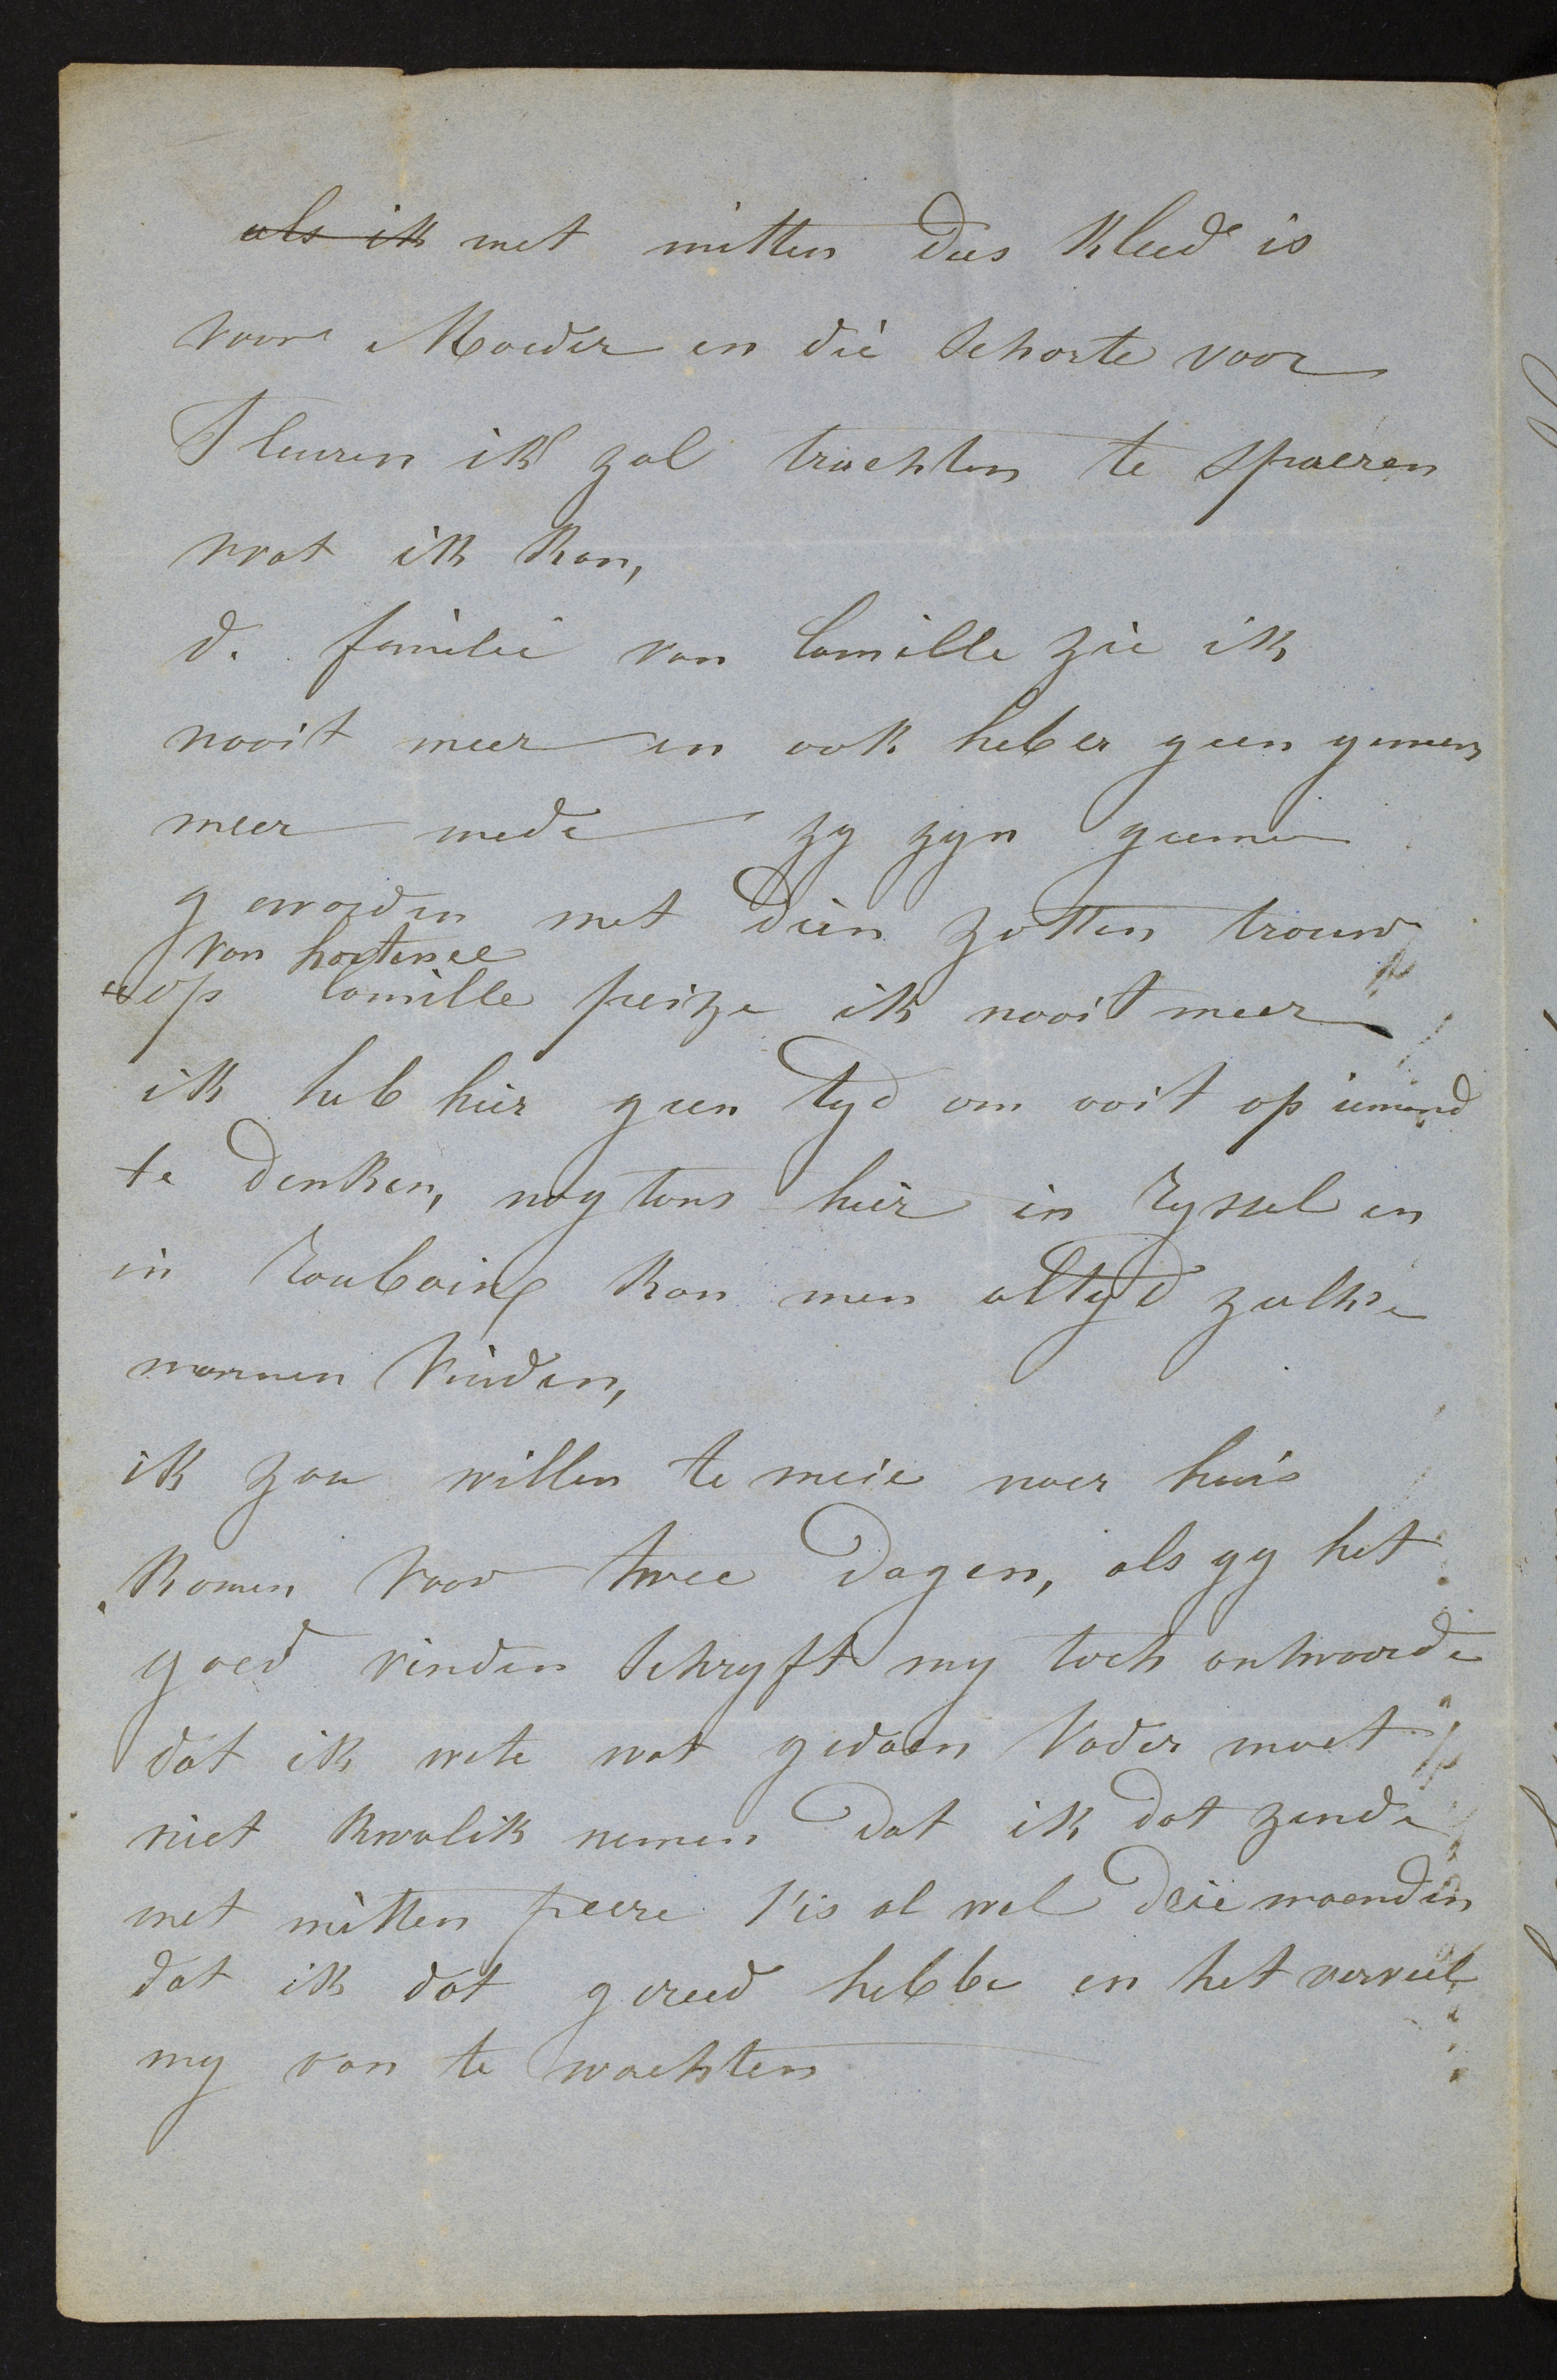 als ik met mitten Dees Kleed is
voor Moeder en die Schorte voor
Fleuren ik zal trachten te spaeren
wat ik kan,
de familie van Camille zie ik
nooit meer en ook heb er geen gemeens
meer mede zy zyn gemeen
geworden met dien zotten trouw
van hortense
op Camille peize ik nooit meer
ik heb hier geen tyd om ooit op iemand
te denken, nogtans hier in Ryssel en
in Roubaix kan men altyd zulke
mannen vinden,
ik zou willen te meie naer huis
komen voor twee dagen, als gy het
goed vinden Schryft my toch antwoorde
dat ik wete wat gedaen Vader moet
niet kwalik nemen dat ik dat zende
met mitten peere t'is al wel drie maenden
dat ik dat gereed hebbe en het verveelt
my van te wachten